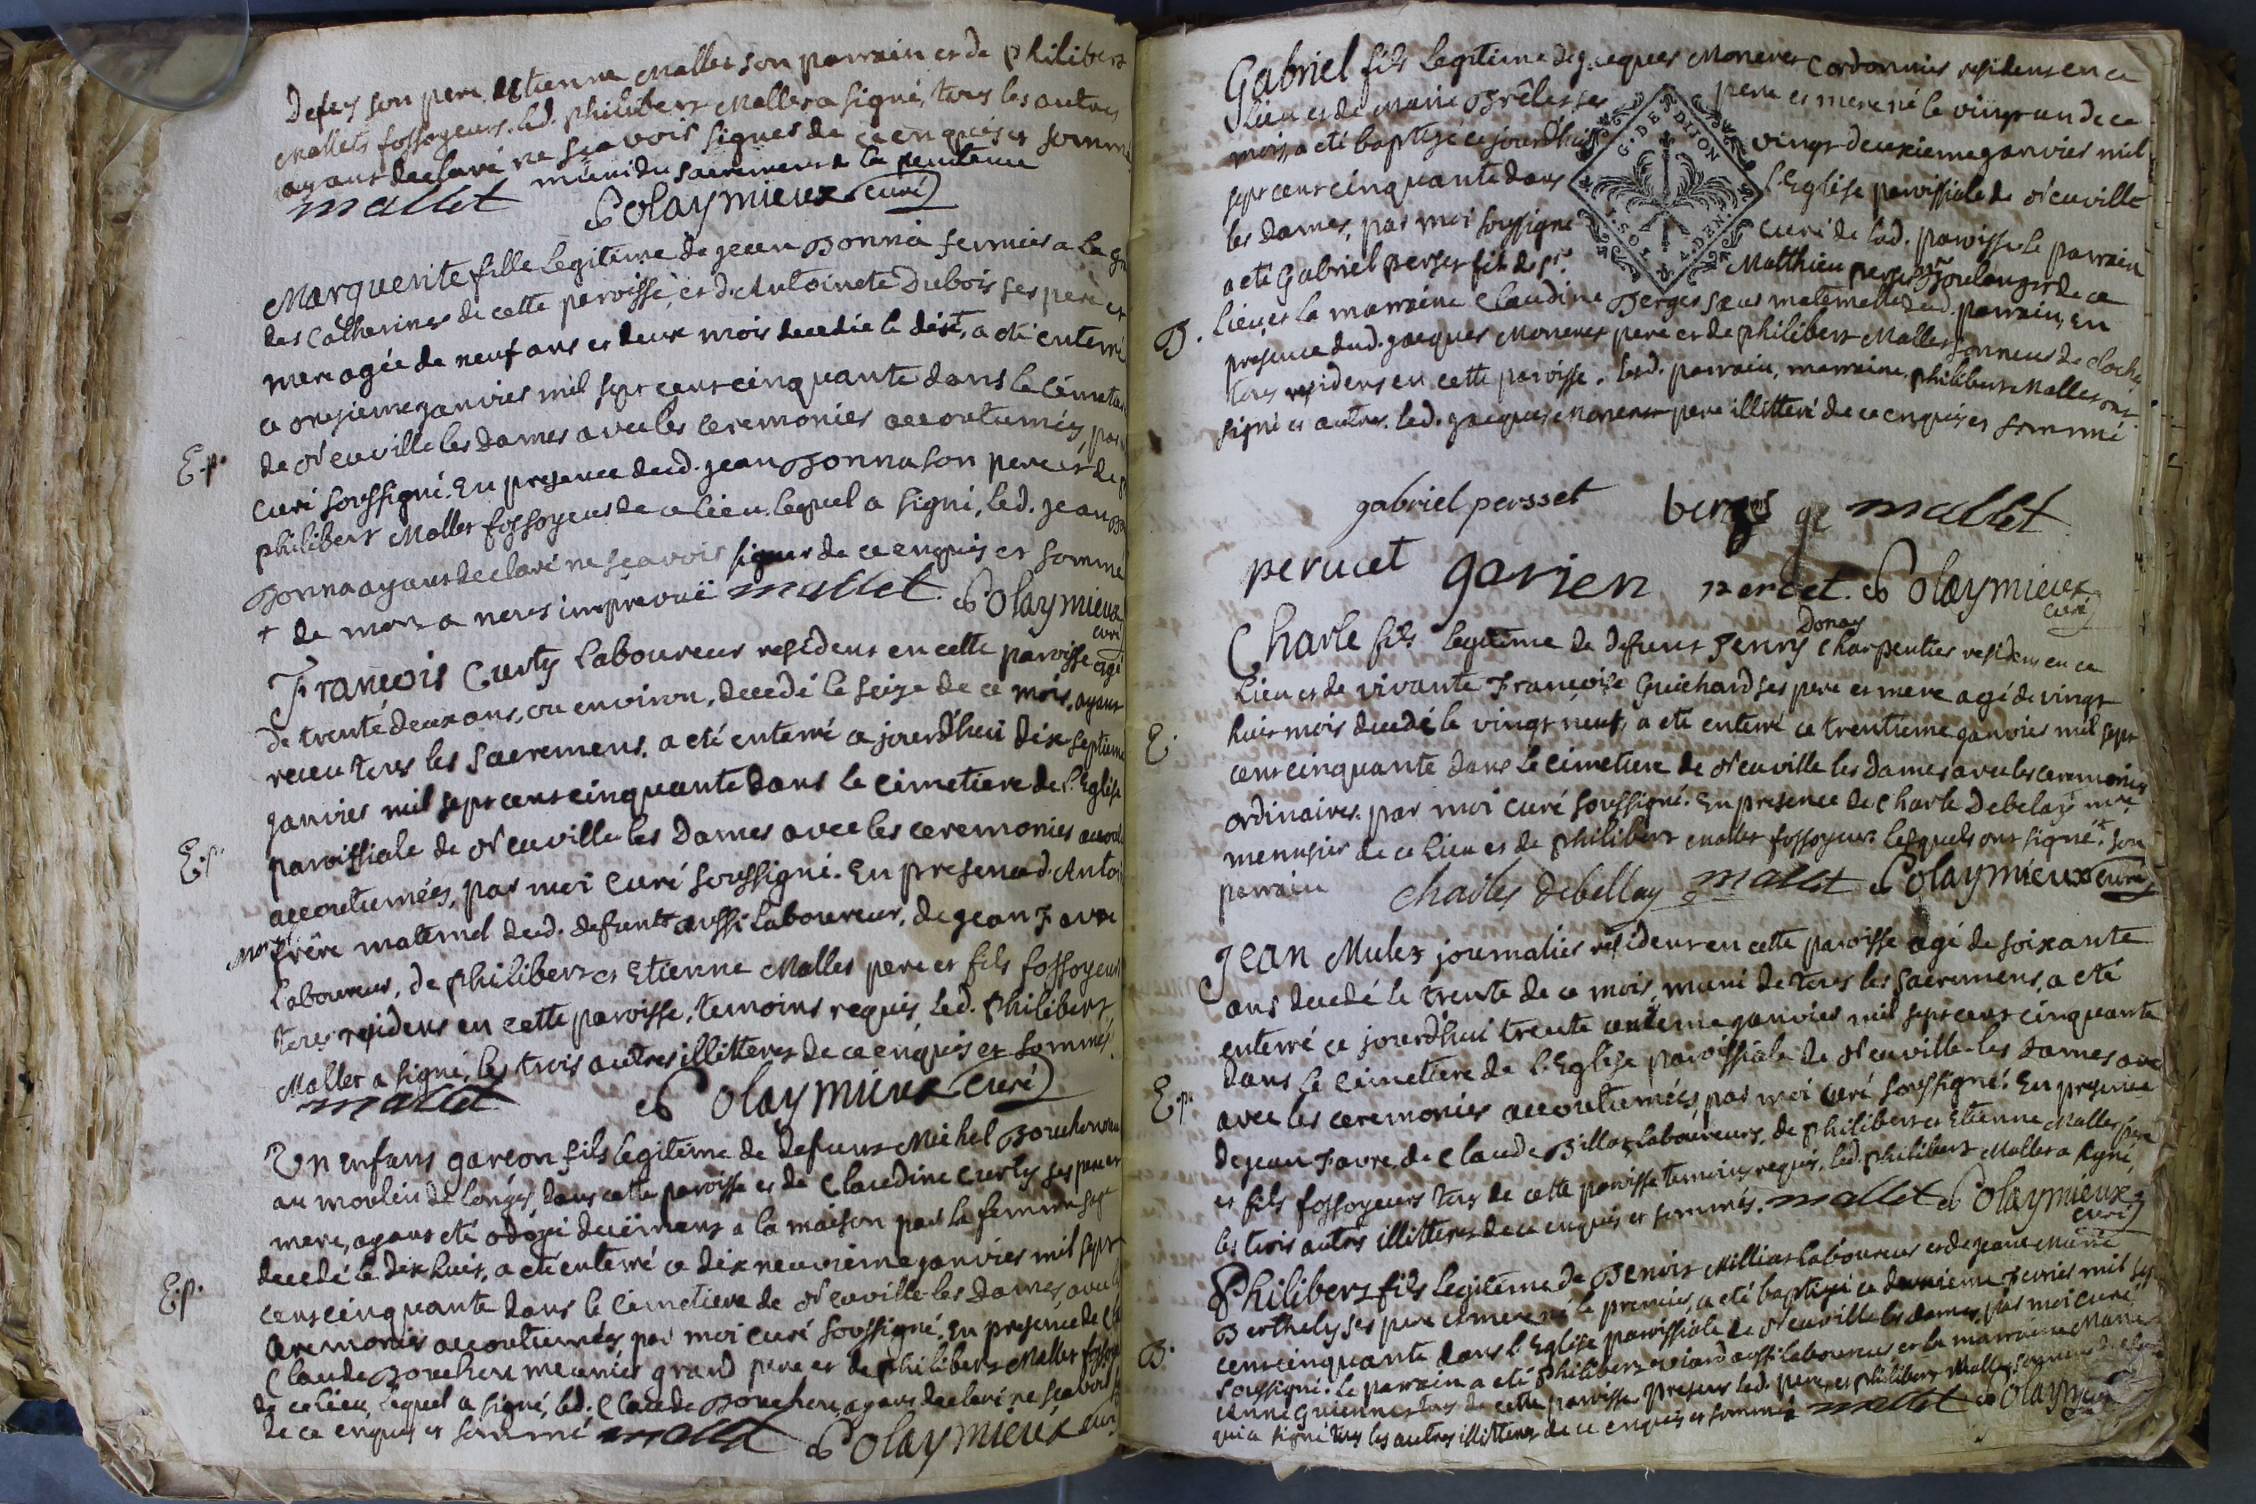 Defey son pere, Etienne Mallet son parrain et de philibert
Mallets fossoyeurs. led. philibert Mallet a signé, tous les autres
ayant declaré ne sçavoir signer de ce enquis et sommé
muni du sacrement de la penitence
mallet Polaymieux curé
Marguerite fille legitime de jean Bonna fermier a la
des Catherines de cette paroisse, et d'Antoinete Dubois ses pere et
mere agée de neuf ans et deux mois decedée le dix +, a été enterré
ce onzieme janvier mil sept cent cinquante dans le Cimetie
E.p. de Neuville les Dames avec les ceremonies accoutumées, par
curé soussigné. En presence dud. jean Bonna son pere et de
philibert Mallet fossoyeur de ce lieu. lequel a signé, led. jean
Bonna ayant declaré ne sçavoir signer de ce enquis et sommé
+ de mort a nous imprévuë mallet. Polaymieux
curé
François Curty laboureur resident en cette paroisse agé
de trente deux ans, ou environ, decedé le seize de ce mois, ayant
receu tous les sacremens, a eté enterré ce jourd'hui dix septieme
janvier mil sept cent cinquante dans le cimetiere de l'Eglise
E.p. paroissiale de Neuville les Dames avec les ceremonies
accoutumées, par moi curé soussigné. En presence d'Antoi
frère maternel dud. defunt aussi laboureur, de jean Favre
laboureur, de philibert et Etienne Mallet pere et fils fossoyeurs
tous residens en cette paroisse, temoins requis, led. philibert
Mallet a signé, les trois autres illitterés de ce enquis et sommés.
mallet Polaymieux curé
Un enfant garçon fils legitime de defunt Michel Bouchon
au moulin de longes dans cette paroisse et de Claudine Curty ses pere et
mere, ayant eté ondoyé duëment a la maison par la femme sage
decedé le dix huit, a eté enterré ce dix neuvieme janvier mil sept
E.p. cent cinquante dans le cimetiere de Neuville les Dames, avec
ceremonies accoutumées par moi curé soussigné. En presence de
Claude Bouchon meunier grand pere et de philibert Mallet fosso
de ce lieu, lequel a signé, led. Claude Bouchon ayant declaré ne sçavoir
de ce enquis et sommé mallet Polaymieux curé
Gabriel fils legitime de jacques Moneret Cordonnier resident en ce
lieu et de Marie Brêlet ses pere et mere né le vingt un de ce
mois, a eté baptisé ce jourd'hui vingt deuxieme janvier mil
sept cent cinquante dans l'Eglise paroissiale de Neuville
les Dames, par moi soussigné curé de lad. paroisse le parrain
a eté Gabriel perset fils de sr. Matthieu perset Me Boulanger de ce
G. DE DIJON
SOL
DEN.
B. lieu et la marraine Claudine Berges sœur maternelle dud. parrain, En
presence dud. jacques Moneret pere et de philibert Mallet sonneur de cloche
tous residens en cette paroisse. lesd. parrain, marraine, philibert Mallet ont
signé et autres. led. jacques Moneret pere illitteré de ce enquis et sommé
gabriel persset berges mallet
perucet garien percet. Polaymieux
curé
Donay
Charle fils legitime de defunt Henry Charpentier resident en ce
lieu et de vivante Françoise Guichard ses pere et mere agé de vingt
E. huit mois decedé le vingt neuf, a eté enterré ce trentieme janvier mil sept
cent cinquante dans le cimetiere de Neuville les Dames avec les ceremonies
ordinaires par moi curé soussigné. En presence de Charle Debelay me
menusier de ce lieu et de philibert Mallet fossoyeur. lesquels ont signé + son
parrain charles debellay mallet Polaymieux curé
Jean Mulet journalier resident en cette paroisse agé de soixante
ans decedé le trente de ce mois, muni de tous les sacremens, a eté
enterré ce jourd'hui trente unieme janvier mil sept cent cinquante
dans le cimetiere de l'Eglise paroissiale de Neuville-les Dames avec
E.p. avec les ceremonies accoutumées par moi curé soussigné. En presence
de jean Favre, de Claude Billot laboureurs, de philibert et Etienne Mallet pere
et fils fossoyeurs tous de cette paroisse temoins requis, led. philibert Mallet a signé,
les trois autres illitterés de ce enquis et sommés. mallet Polaymieux
curé
Philibert fils legitime de Benoit Milliat laboureur et de jeane Marie
Berthely ses pere et mere né le premier, a eté baptisé ce deuxieme Fevrier mil sept
B. cent cinquante dans l'Eglise paroissiale de Neuville les Dames, par moi curé
soussigné. le parrain a eté philibert aussi laboureur et la marraine Marie
tous de cette paroisse. presens led. pere, et philibert Mallet sonneur de cloche
qui a signé tous les autres illitterés de ce enquis et sommés mallet Polaymieux